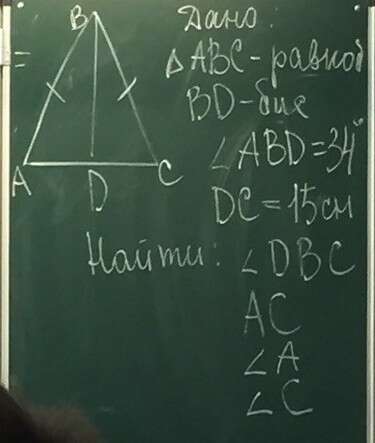 Дано:
△ABC-равноб
BD-бис
∠ABD=34°
DC=15см
Найти: ∠DBC
AC
∠A
∠C
B
A
D
C
=